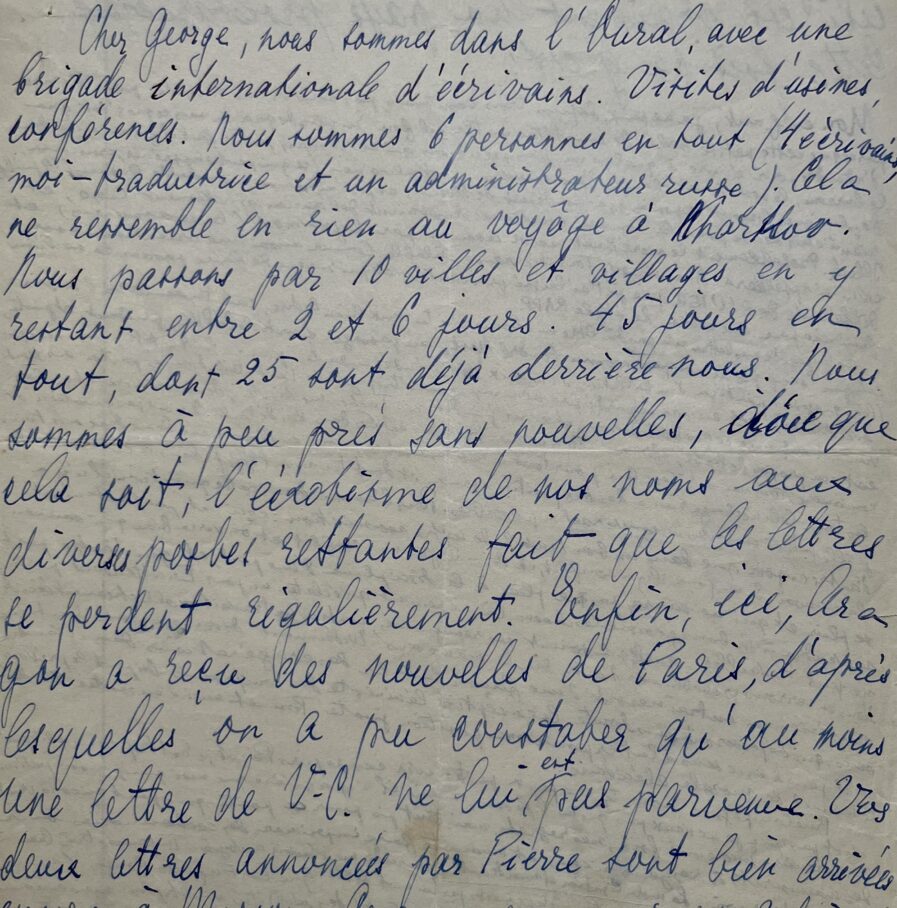 Cher George, nous sommes dans l'Oural, avec une
brigade internationale d'écrivains. Visites d'usines,
conférences. Nous sommes 6 personnes en tout (4 écrivains,
moi-traductrice et un administrateur russe). Cela
ne ressemble en rien au voyâge à Kharkov.
Nous passons par 10 villes et villages en y
restant entre 2 et 6 jours. 45 jours en
tout, dont 25 sont déjà derrière nous. Nous
sommes à peu près sans nouvelles, que
cela soit, l'éxotisme de nos noms aux
diverses postes restantes fait que les lettres
se perdent régulièrement. Enfin, ici, Ara-
gon a reçu des nouvelles de Paris, d'après
lesquelles on a pu constater qu'au moins
une lettre de V-C. ne lui est pas parvenue. Vos
deux lettres annoncées par Pierre sont bien arrivées